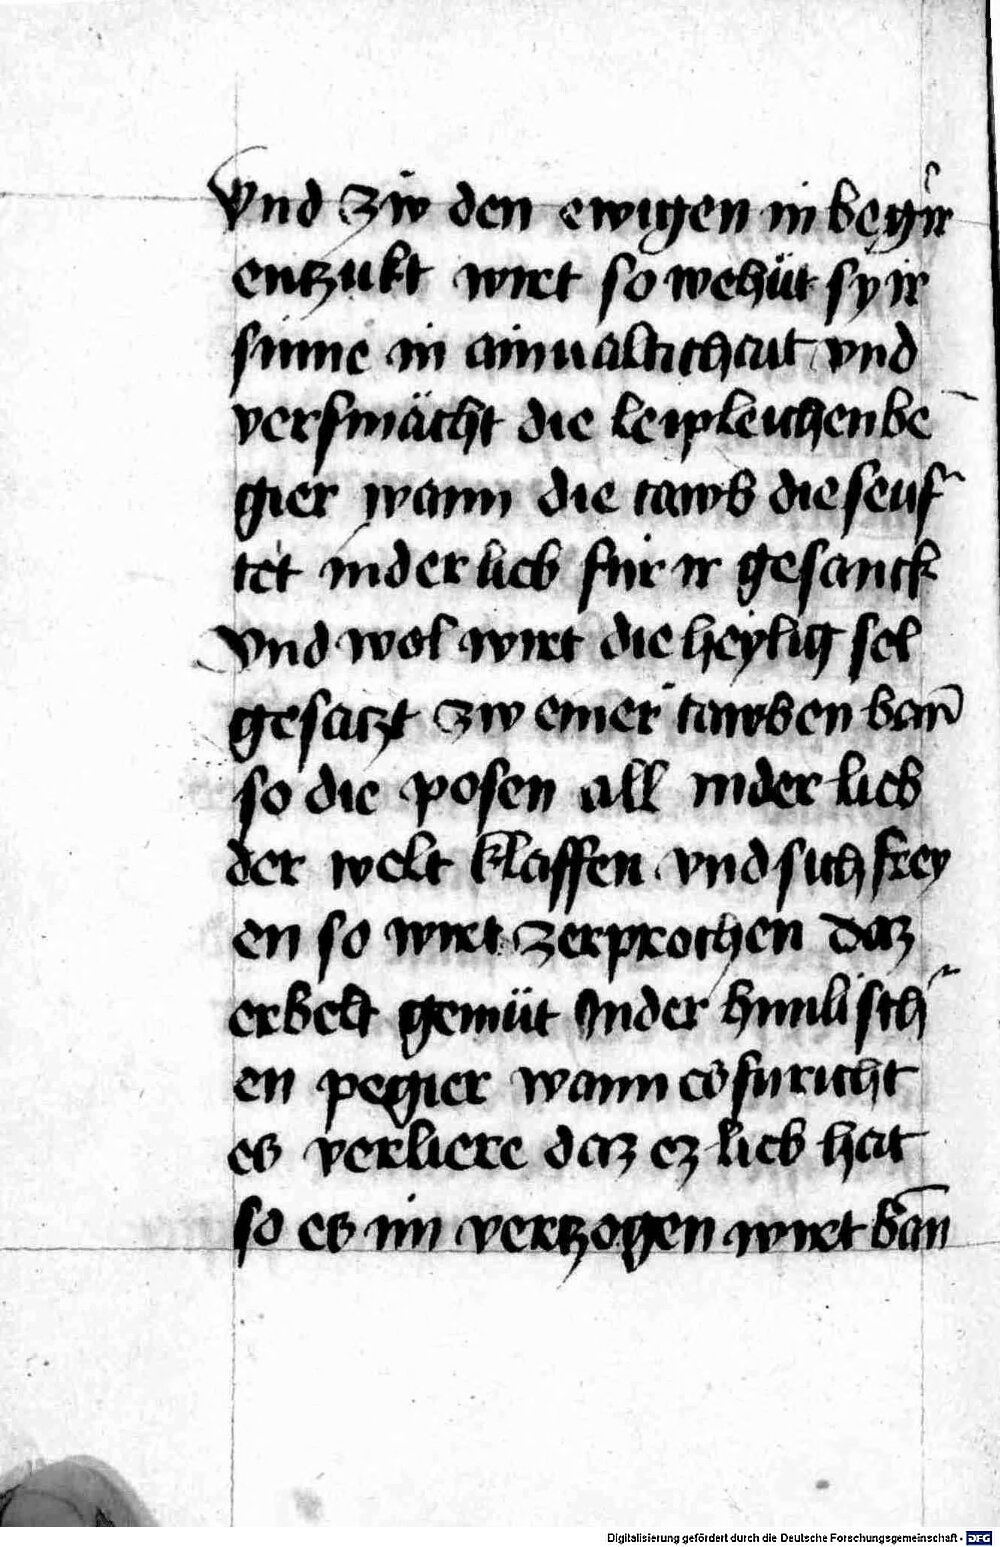 vnd zw den ewigen in begir
entzukt wirt so wehüt sy ir
sinne in ainualtichait vnd
versmächt die leipleichen be
gier wann die tawb die seuf
tet in der lieb für ir gesanck
vnd wol wirt die heylig sel
gesatzt zw einer tawben wan̄
so die posen all in der lieb
der welt klaffen vnd sich frey
en so wirt zerprochen daz
erbelt gemüt In der himlisch
en pegier wann es furicht
es verliere daz ez lieb hat
so es im vertzogen wirt wan̄
Digitalisierung gefördert durch die Deutsche Forschungsgemeinschaft - DFG